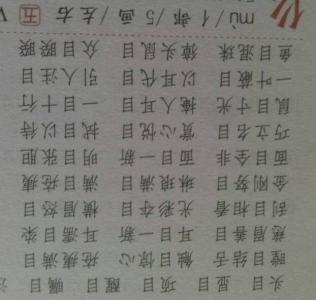 头目 显目 项目 醒目 瞩目
瞠目结舌 触目惊心 疮痍满目
慈眉善目 耳目一新 耳濡目染
刮目相看 光彩夺目 横眉怒目
金刚怒目 琳琅满目 满目疮痍
面目全非 面目一新 明目张胆
巧立名目 赏心悦目 拭目以待
鼠目寸光 掩人耳目 一目十行
一叶蔽目 以耳代目 引人注目
鱼目混珠 獐头鼠目 众目睽睽
仫 mù/亻部/5画/左右 五